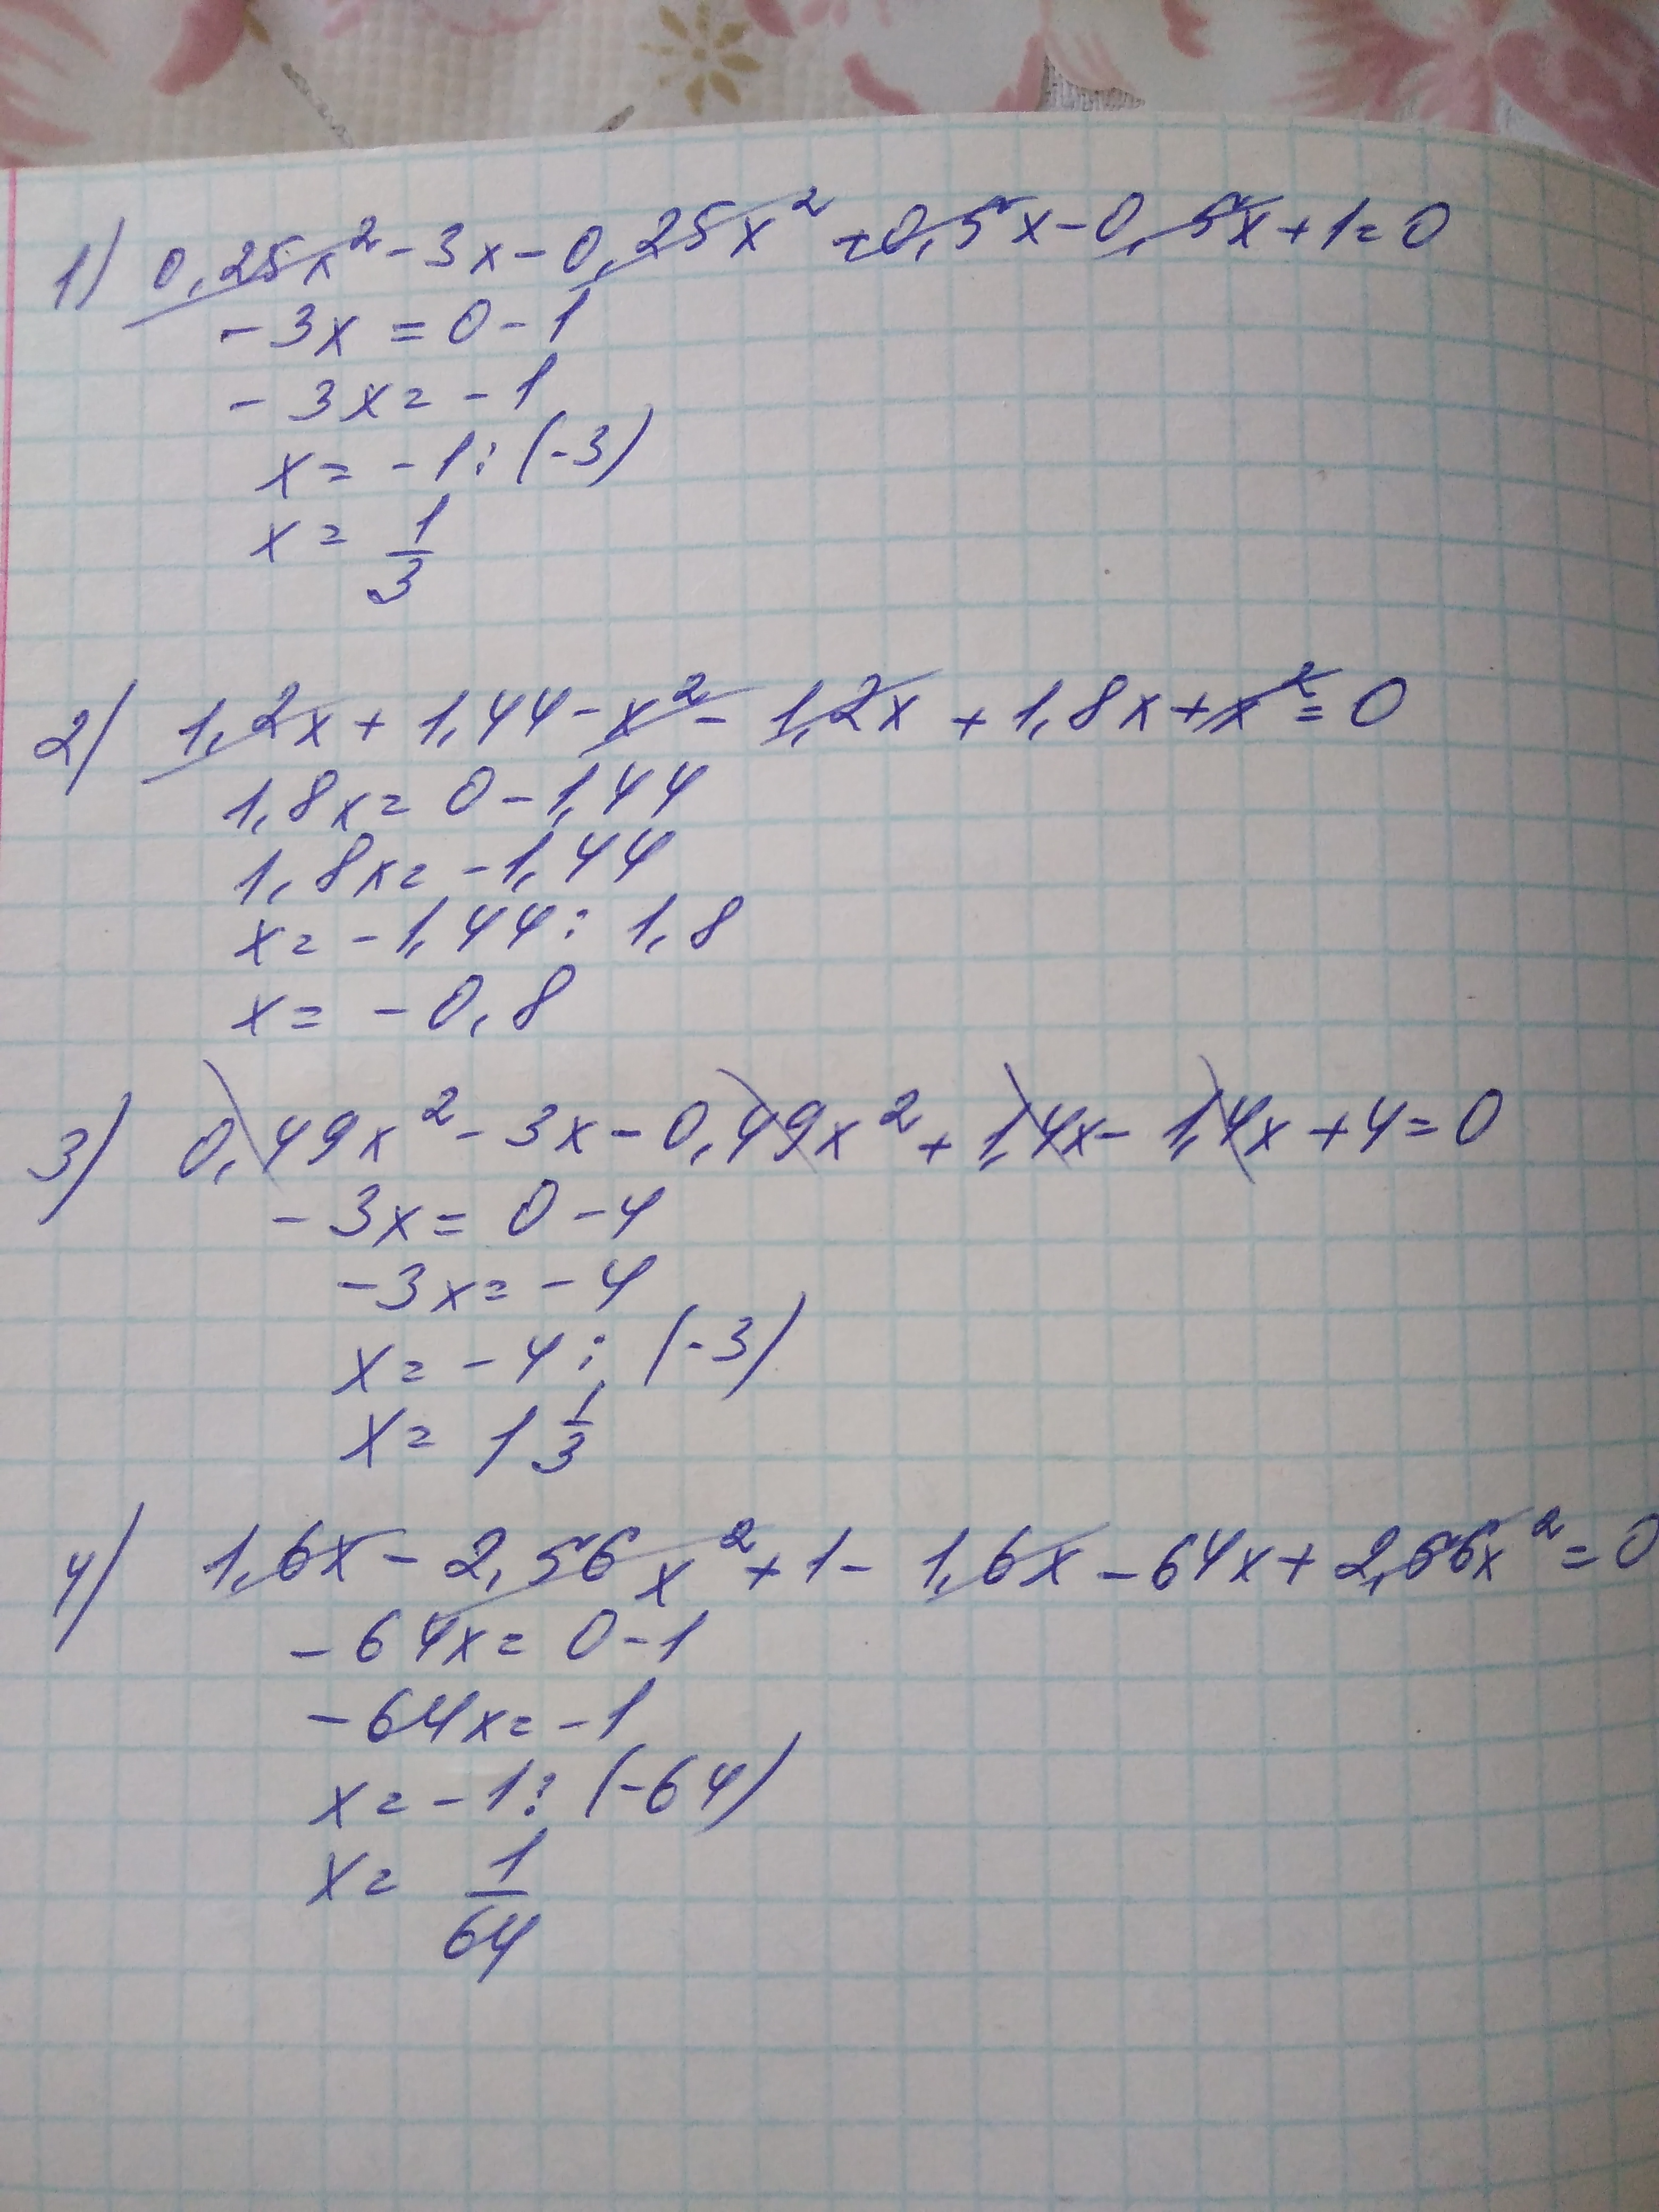 1) 0,25x² - 3x - 0,25x² + 0,5x - 0,5x + 1 = 0
- 3x = 0 - 1
- 3x = - 1
x = - 1 : (-3)
x = 1/3
2) 1,2x + 1,44 - x² - 1,2x + 1,8x + x² = 0
1,8x = 0 - 1,44
1,8x = -1,44
x = -1,44 : 1,8
x = - 0,8
3) 0,49x² - 3x - 0,49x² + 1,4x - 1,4x + 4 = 0
- 3x = 0 - 4
- 3x = - 4
x = - 4 : (-3)
x = 1 1/3
4) 1,6x - 2,56x² + 1 - 1,6x - 64x + 2,56x² = 0
- 64x = 0 - 1
- 64x = - 1
x = - 1 : (-64)
x = 1/64